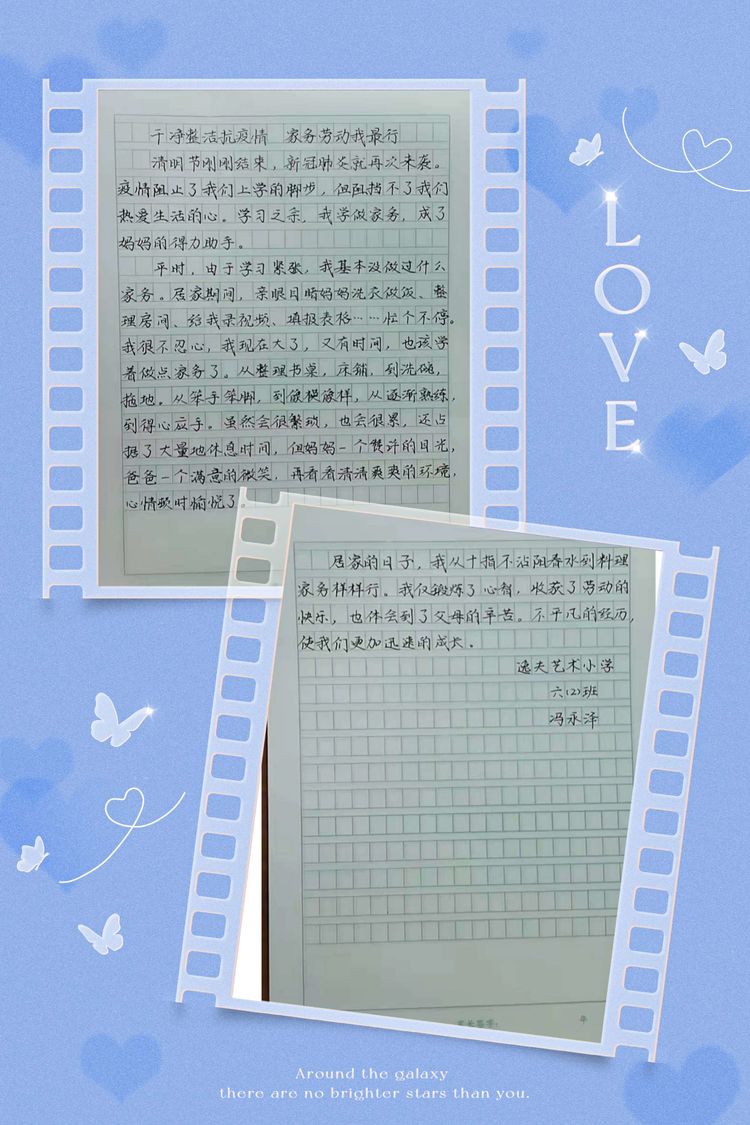 干净整洁抗疫情 家务劳动我最行
清明节刚刚结束，新冠肺炎就再次来袭。
疫情阻止了我们上学的脚步，但阻挡不了我们
热爱生活的心。学习之余，我学做家务，成了
妈妈的得力助手。
平时，由于学习紧张，我基本没做过什么
家务。居家期间，亲眼目睹妈妈洗衣做饭、整
理房间、给我录视频、填报表格……忙个不停。
我很不忍心，我现在大了，又有时间，也该学
着做点家务了。从整理书桌，床铺，到洗碗，
拖地。从笨手笨脚，到像模像样，从逐渐熟练，
到得心应手。虽然会很繁琐，也会很累，还占
据了大量地休息时间，但妈妈一个赞许的目光，
爸爸一个满意的微笑，再看看清清爽爽的环境，
心情顿时愉悦了。
居家的日子，我从十指不沾阳春水到料理
家务样样行。我仅锻炼了心智，收获了劳动的
快乐，也体会到了父母的辛苦。不平凡的经历，
使我们更加迅速的成长。
逸夫艺术小学
六(2)班
冯永泽
家长签字：
年
LOVE
Around the galaxy
there are no brighter stars than you.